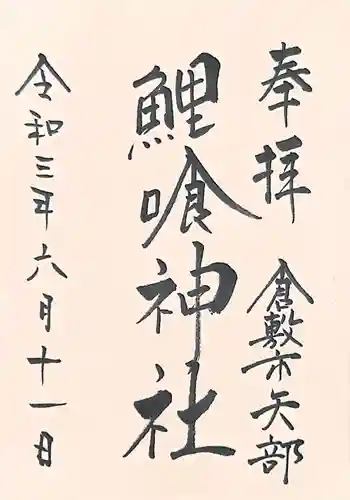 奉拝 倉敷市矢部
鯉喰神社
令和三年六月十一日